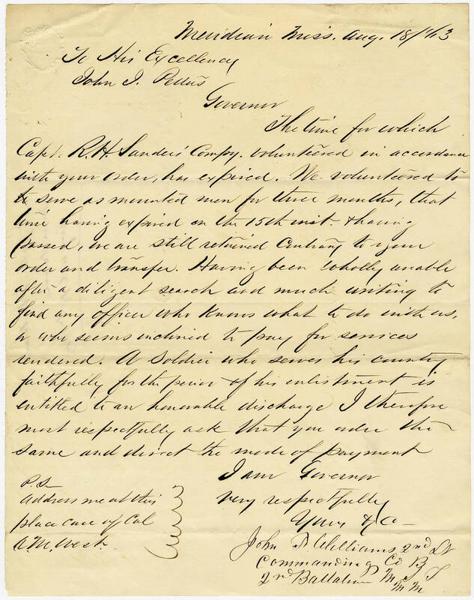 Meridian Miss. Aug. 18/63
To His Excellency
John J. Pettus
Governor
The time for which
Capt. R. H. Sanders' Compy. volunteered in accordance
with your order, has expired. We volunteered to
to serve as mounted men for three months, that
time having expired on the 15th inst. & having
passed, we are still retained contrary to your
order and transfer. Having been wholly unable
after a diligent search and much writing to
find any officer who knows what to do with us,
or who seems inclined to pay for services
rendered. A Soldier who serves his country
faithfully for the period of his enlistment is
entitled to an honorable discharge I therefore
most respectfully ask that you order the
same and direct the mode of payment
I am Governor
Very respectfully
Yours &c
John D Williams 2nd Lt
Commanding Co B
2nd Battalion M. S. M M
P.S.
Address me at this
place care of Col
A. M. West.